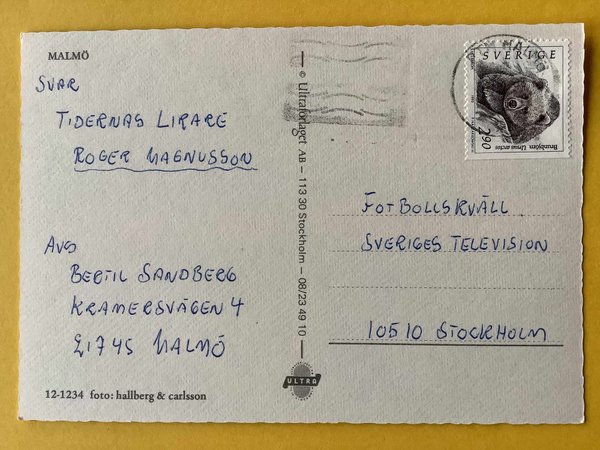 MALMÖ
SVAR
TIDERNAS LIRARE
ROGER MAGNUSSON
AVS
BERTIL SANDBERG
KRAMERSVÄGEN 4
21745 MALMÖ
12-1234 foto: hallberg & carlsson
© Ultraförlaget AB – 113 30 Stockholm – 08/23 49 10
ULTRA
MALMÖ
SVERIGE
2.90
Brunbjörn Ursus arctos
FOTBOLLSKVÄLL
SVERIGES TELEVISION
10510 STOCKHOLM